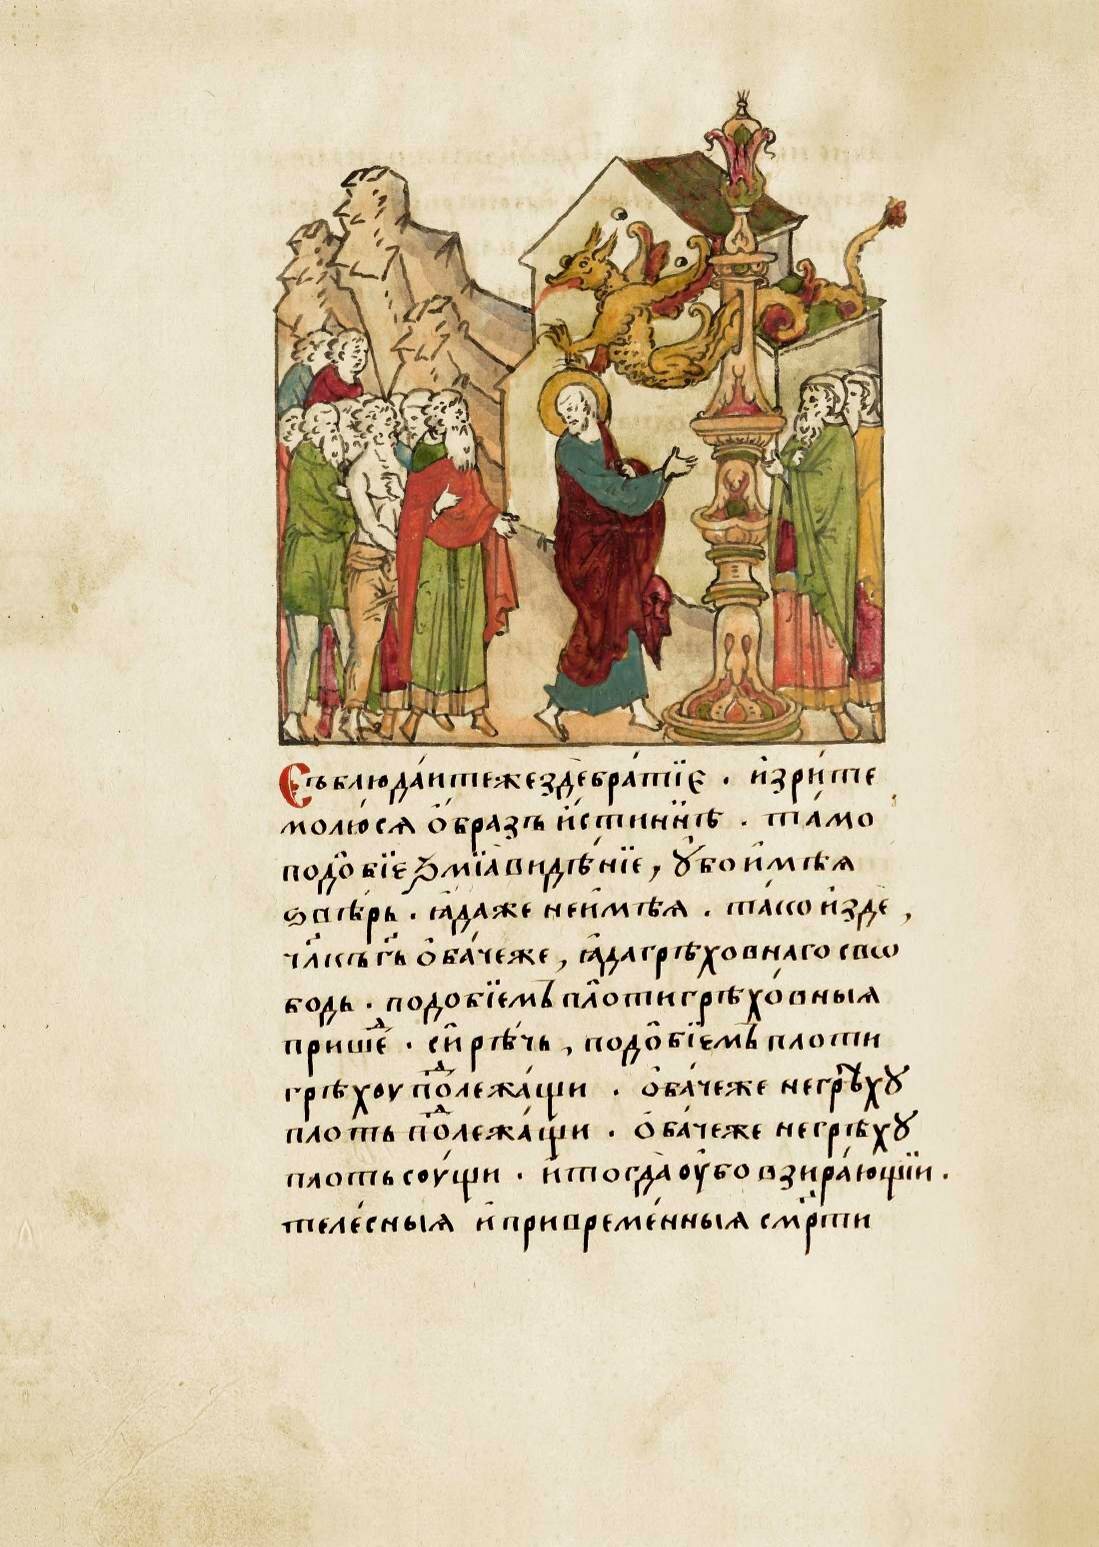 Съблюда́итежездебра́тїє . и҆зри́те
молю́ся ѻ҆́бразъ и҆́стиннїѣ . та́мо
подо́бїе ѕмїа̀видѣ́нїе , ᲂу҆́боимѣ́я
ѕвѣ́рь . ꙗ҆́даже неи҆мѣ́я . та́ко и҆здѐ ,
чл҃къгь ѻ҆ба́чеже , ꙗ҆дагрѣхо́внагосвѡ
бодь . подо́бїемъ пло́тигрѣхо́вныя
прише́д . си҆рѣ́чь , подо́бїемъ плоти
грѣхоу подлежа́щи . ѻ҆ба́чеже негрѣхꙋ̀
плоть подлежа́щи . ѻ҆ба́чеже негрѣхꙋ̀
плотьсоу́щи . и҆тогда̀ оу҆бо взира́ющїи .
теле́сныя и҆привреме́нныя смр҃ти